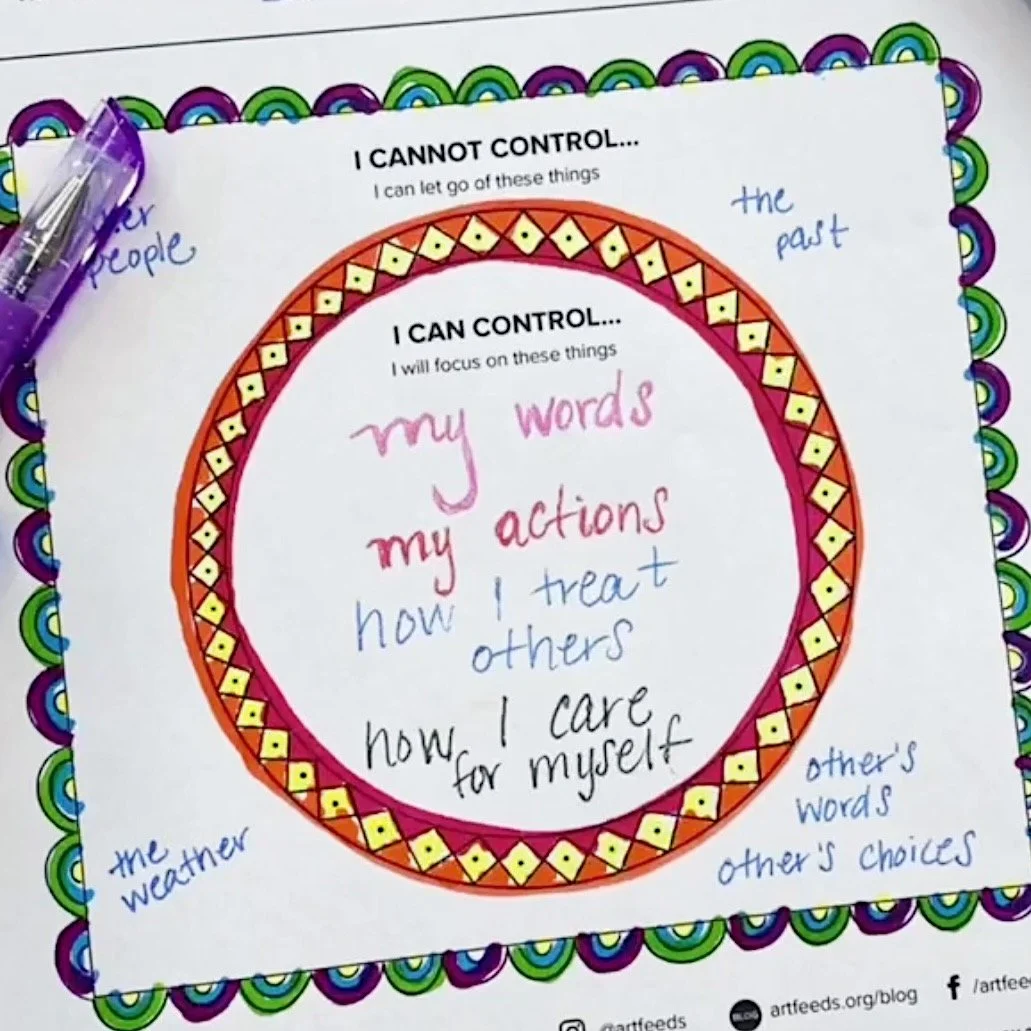 I CANNOT CONTROL...
I can let go of these things
people
the
past
I CAN CONTROL...
I will focus on these things
my words
my actions
how I treat
others
how I care
for myself
the
weather
other's
words
other's choices
@artfeeds
BLOG
artfeeds.org/blog
/artfee